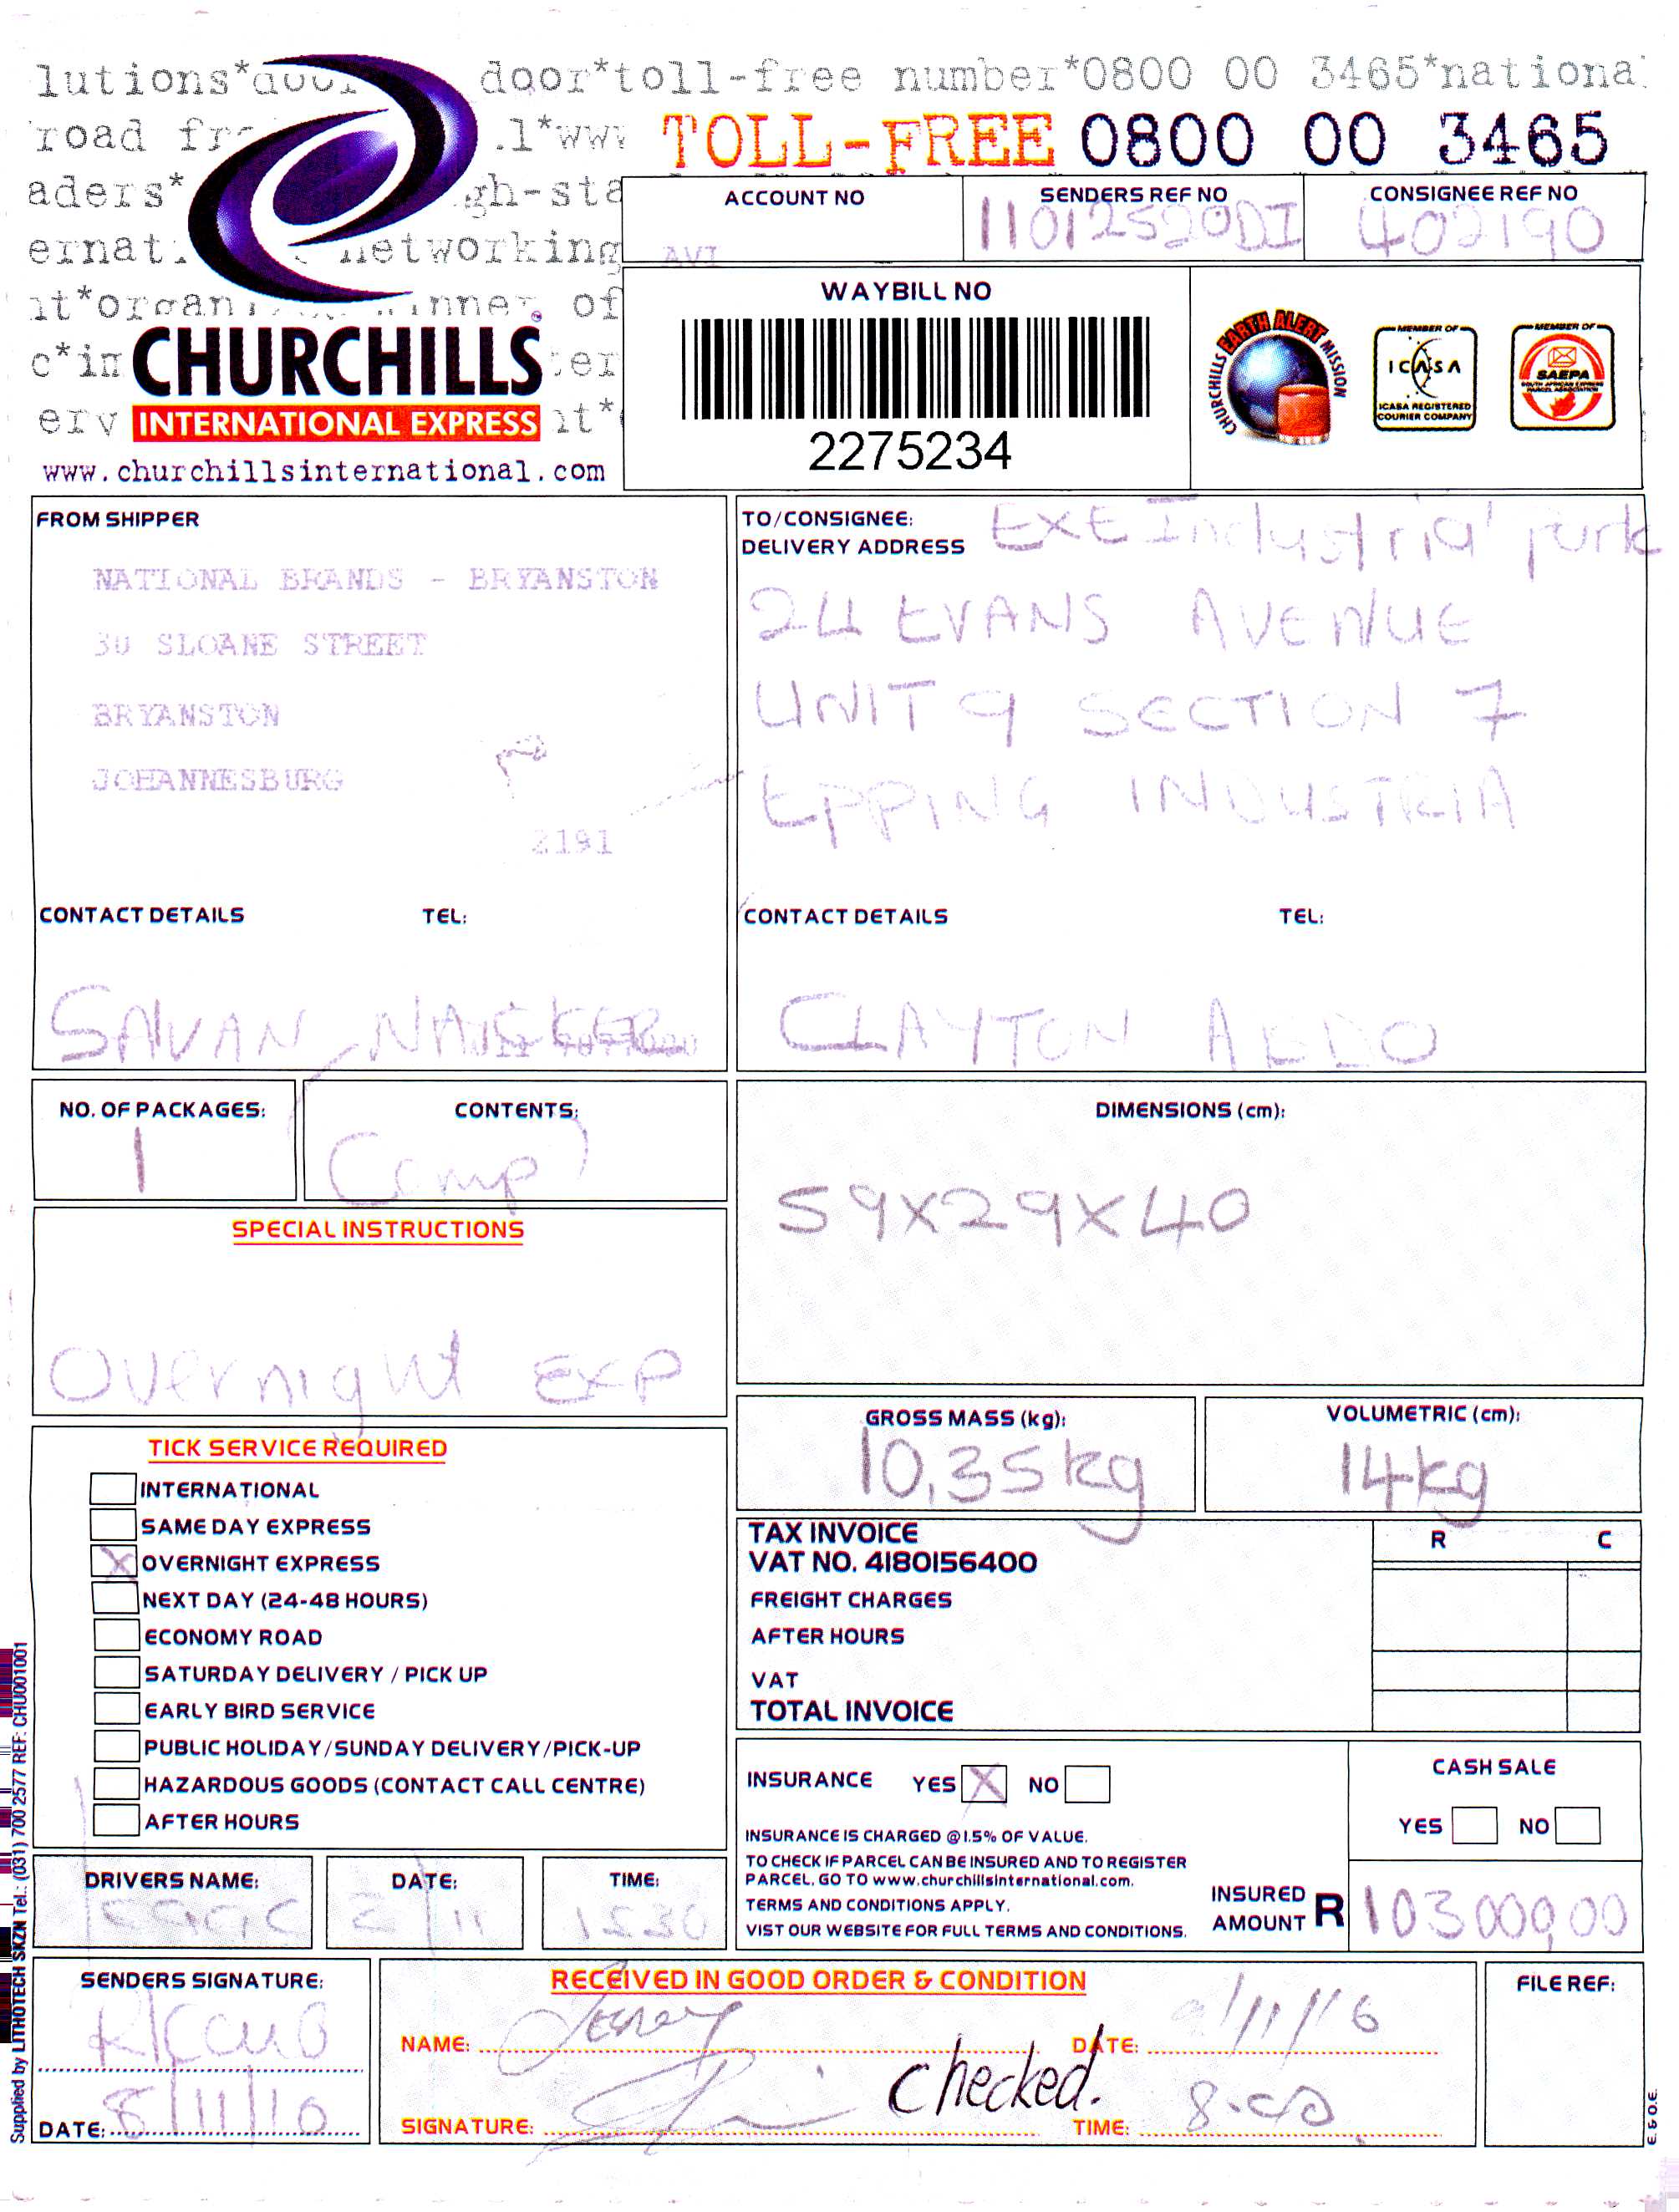 lutions* door*toll-free number*0800 00 3465*national
road .1*www TOLL-FREE 0800 00 3465
aders* gh-sta
ACCOUNT NO
AVI
SENDERS REF NO
11012520DI
CONSIGNEE REF NO
402190
ernat networking
it*organi inner of
CHURCHILLS
INTERNATIONAL EXPRESS
www.churchillsinternational.com
WAYBILL NO
2275234
CHURCHILLS EARTH ALERT MISSION
MEMBER OF
ICASA
ICASA REGISTERED
COURIER COMPANY
MEMBER OF
SAEPA
SOUTH AFRICAN EXPRESS
PARCEL ASSOCIATION
FROM SHIPPER
NATIONAL BRANDS - BRYANSTON
30 SLOANE STREET
BRYANSTON
JOHANNESBURG
2191
CONTACT DETAILS TEL:
SAVAN NAICKER
TO/CONSIGNEE:
DELIVERY ADDRESS
EXE Industrial park
24 EVANS AVENUE
UNIT 9 SECTION 7
EPPING INDUSTRIA
CONTACT DETAILS TEL:
CLAYTON
NO. OF PACKAGES:
1
CONTENTS:
Comp
DIMENSIONS (cm):
59X29X40
SPECIAL INSTRUCTIONS
Overnight EXP
GROSS MASS (kg):
10,35kg
VOLUMETRIC (cm):
14kg
TICK SERVICE REQUIRED
INTERNATIONAL
SAME DAY EXPRESS
X OVERNIGHT EXPRESS
NEXT DAY (24-48 HOURS)
ECONOMY ROAD
SATURDAY DELIVERY / PICK UP
EARLY BIRD SERVICE
PUBLIC HOLIDAY/SUNDAY DELIVERY/PICK-UP
HAZARDOUS GOODS (CONTACT CALL CENTRE)
AFTER HOURS
TAX INVOICE R C
VAT NO. 4180156400
FREIGHT CHARGES
AFTER HOURS
VAT
TOTAL INVOICE
INSURANCE YES X NO
INSURANCE IS CHARGED @ 1.5% OF VALUE.
TO CHECK IF PARCEL CAN BE INSURED AND TO REGISTER
PARCEL, GO TO www.churchillsinternational.com.
TERMS AND CONDITIONS APPLY.
VIST OUR WEBSITE FOR FULL TERMS AND CONDITIONS.
CASH SALE
YES NO
INSURED
AMOUNT R 103000,00
DRIVERS NAME:
Isaac
DATE:
8/11
TIME:
1530
SENDERS SIGNATURE:
DATE: 8/11/10
RECEIVED IN GOOD ORDER & CONDITION
NAME:
DATE: 9/11/10
checked.
SIGNATURE:
TIME: 8.00
FILE REF:
E. & O.E.
Supplied by LITHOTECH SKZN Tel.: (031) 700 2577 REF: CHU001001